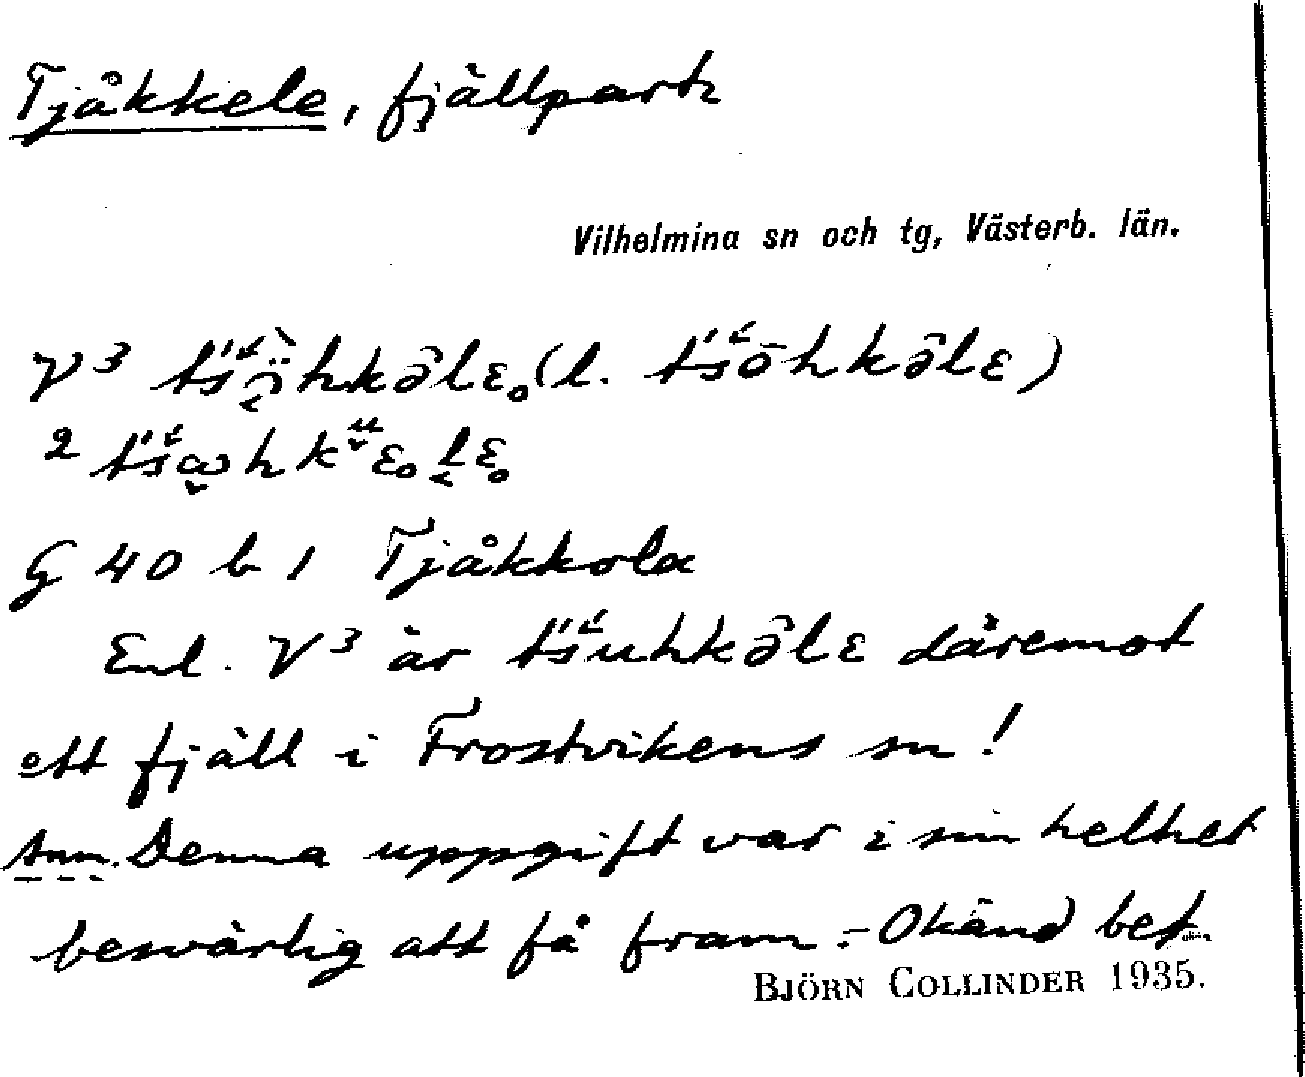 Tjåkkele, fjällparti
Vilhelmina sn och tg, Västerb. län.
V 3 (l.
2
G 40 b 1 Tjåkkola
Enl. V 3 är däremot
ett fjäll i Frostvikens sn!
Anm. Denna uppgift var i sin helhet
besvärlig att få fram. - Okänd bet.
BJÖRN COLLINDER 1935.